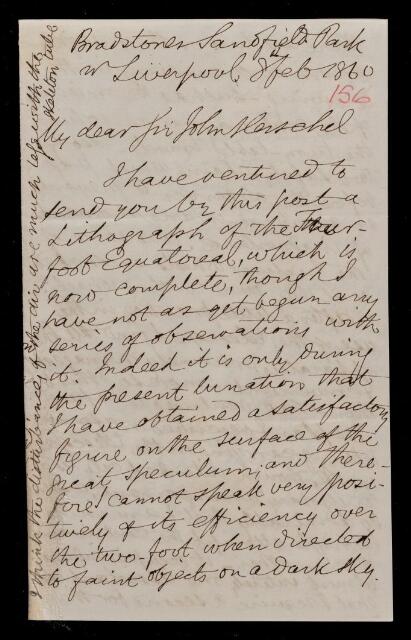 Bradstones Sandfield Park
nr Liverpool, 8 Feb 1860
156
My dear Sir John Herschel
I have ventured to
send you by this post a
Lithograph of the Four-
foot Equatoreal, which is
now complete, though I
have not as yet begun any
series of observations with
it. Indeed it is only during
the present lunation that
I have obtained a satisfactory
figure on the surface of the
great speculum; and there-
fore I cannot speak very posi-
tively of its efficiency over
the two-foot when directed
to faint objects on a dark sky.
I think the disturbances of the air are much less with the
skeleton tube